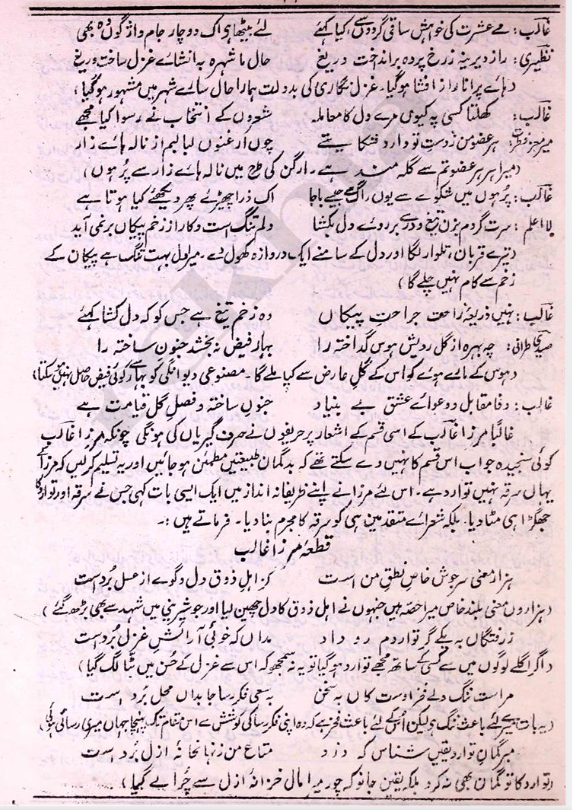 غالب: مے عشرت کی خواہش ساقیِ گردوں سے کیا کیجے لئے بیٹھا ہے اک دو چار جام واژگوں وہ بھی
نظیری: راز دیرینہ ز رخ پردہ براند اخت دریغ حال ما شہرہ بہ انشائے غزل ساخت دریغ
(ہائے پرانا راز افشا ہو گیا۔ غزل نگاری کی بدولت ہمارا حال سارے شہر میں مشہور ہو گیا)
غالب: کھلتا کسی پہ کیوں مرے دل کا معاملہ شعروں کے انتخاب نے رسوا کیا مجھے
ہر عضو من ز دستِ تو دارد شکایتے چوں ارغنوں لبالبم از نالہ ہائے زار
(میرا ہر ہر عضو تم سے گلہ مند ہے۔ ارگن کی طرح میں نالہ ہائے زار سے پُر ہوں)
غالب: پُر ہوں میں شکوے سے یوں، راگ سے جیسے باجا اک ذرا چھیڑئے پھر دیکھئے کیا ہوتا ہے
لااعلم: سرت گردم بزن تیغ و درے بر روئے دل بکشا دلم تنگ است و کار از زخم پیکاں بر نمی آید
(تیرے قربان، تلوار لگا اور دل کے سامنے ایک دروازہ کھول دے۔ میرا دل بہت تنگ ہے پیکان کے
زخم سے کام نہیں چلے گا)
غالب: نہیں ذریعۂ راحت جراحتِ پیکاں وہ زخمِ تیغ ہے جس کو کہ دل کشا کہئے
صیدی طہرانی: چہ بہرہ از گل رویش ہوس گداختہ را بہار فیض نہ بخشد جنون ساختہ را
(ہوس کے مارے ہوئے کو اس کے گلِ عارض سے کیا ملے گا۔ مصنوعی دیوانگی کو بہار سے کوئی فیض حاصل نہیں ہو سکتا)
غالب: وفا مقابل و دعوائے عشق بے بنیاد جنوں ساختہ و فصلِ گل قیامت ہے
غالباً مرزا غالب کے اسی قسم کے اشعار پر حریفوں نے حرف گیریاں کی ہونگی چونکہ مرزا غالب
کوئی سنجیدہ جواب اس قسم کا نہیں دے سکتے تھے کہ بدگمان طبیعتیں مطمئن ہو جائیں اور یہ تسلیم کر لیں کہ مرزا کے
یہاں سرقہ نہیں توارد ہے۔ اس لئے مرزا نے اپنے ظریفانہ انداز میں ایک ایسی بات کہی جس نے سرقہ اور توارد کا
جھگڑا ہی مٹا دیا۔ بلکہ شعرائے متقدمین ہی کو سرقہ کا مجرم بنا دیا۔ فرماتے ہیں:۔
قطعۂ مرزا غالب
ہزار معنی سرجوش خاص نطقِ من است کز اہل ذوق دل و گوے از عسل بُردست
(ہزاروں معنی بلند خاص میرا حصہ ہیں جنہوں نے اہل ذوق کا دل چھین لیا اور جو شیرینی میں شہد سے بھی بڑھ گئے)
ز رفتگاں بہ یکے گر تواردم رو داد مداں کہ خوبیِ آرائشِ غزل بُردست
(اگر اگلے لوگوں میں سے کسی کے ساتھ مجھے توارد ہو گیا تو یہ نہ سمجھ کہ اس سے غزل کے حُسن میں بٹا لگ گیا)
مراست ننگ ولے فخر اوست کاں بہ سخن بسعی فکر رسا جا بداں محل بُردست
(یہ بات میرے لئے باعث ننگ ہے لیکن اُس کے لئے باعث فخر ہے کہ وہ اپنی فکر رسا کی کوشش سے اس مقام تک پہنچا جہاں میری رسائی ہوئی)
مبر گمانِ توارد یقیں شناس کہ دزد متاع من ز نہاں خانۂ ازل بردست
(توارد کا تو گمان بھی نہ کرو بلکہ یقین جانو کہ چور میرا مال خزانۂ ازل سے چرا لے گیا)